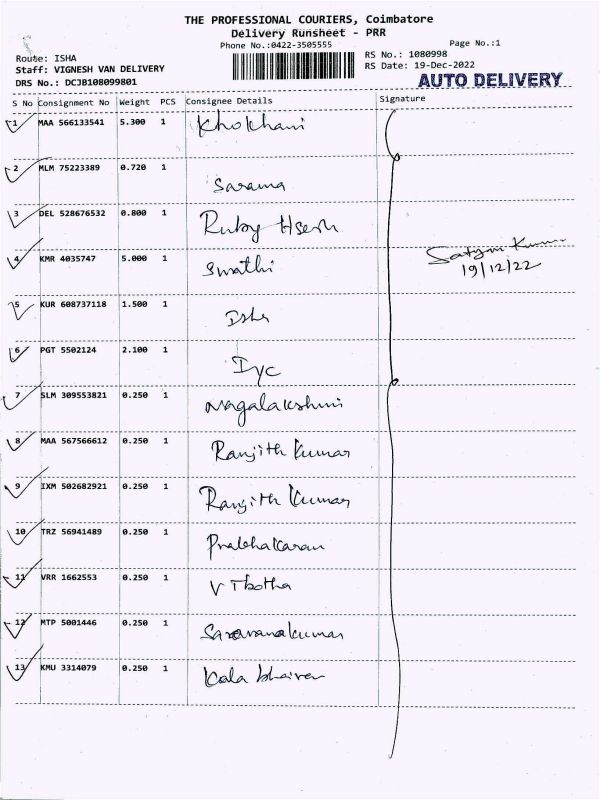 THE PROFESSIONAL COURIERS, Coimbatore
Delivery Runsheet - PRR
Phone No.:0422-3505555
Page No.:1
Route: ISHA
RS No.: 1080998
Staff: VIGNESH VAN DELIVERY
RS Date: 19-Dec-2022
DRS No.: DCJB108099801
AUTO DELIVERY
S No Consignment No Weight PCS Consignee Details Signature
1 MAA 566133541 5.300 1 Khokhani
2 MLM 75223389 0.720 1 Sarama
3 DEL 528676532 0.800 1 Ruby
4 KMR 4035747 5.000 1 Swathi
19/12/22
5 KUR 608737118 1.500 1 Isha
6 PGT 5502124 2.100 1 Iyc
7 SLM 309553821 0.250 1 Nagalakshmi
8 MAA 567566612 0.250 1 Ranjith Kumar
9 IXM 502682921 0.250 1 Ranjith Kumar
10 TRZ 56941489 0.250 1 Prabhakaran
11 VRR 1662553 0.250 1 V
12 MTP 5001446 0.250 1 Saravanakumar
13 KMU 3314079 0.250 1 Kala